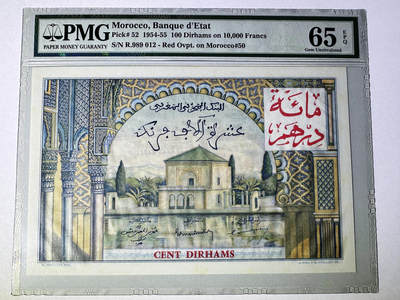 PMG
PAPER MONEY GUARANTY
Morocco, Banque d'Etat
Pick# 52 1954-55 100 Dirhams on 10,000 Francs
S/N R.989 012 - Red Ovpt. on Morocco#50
65 EPQ
Gem Uncirculated
البنك المخزني المغربي
مائة
درهم
عشرة آلاف فرنك
CENT DIRHAMS